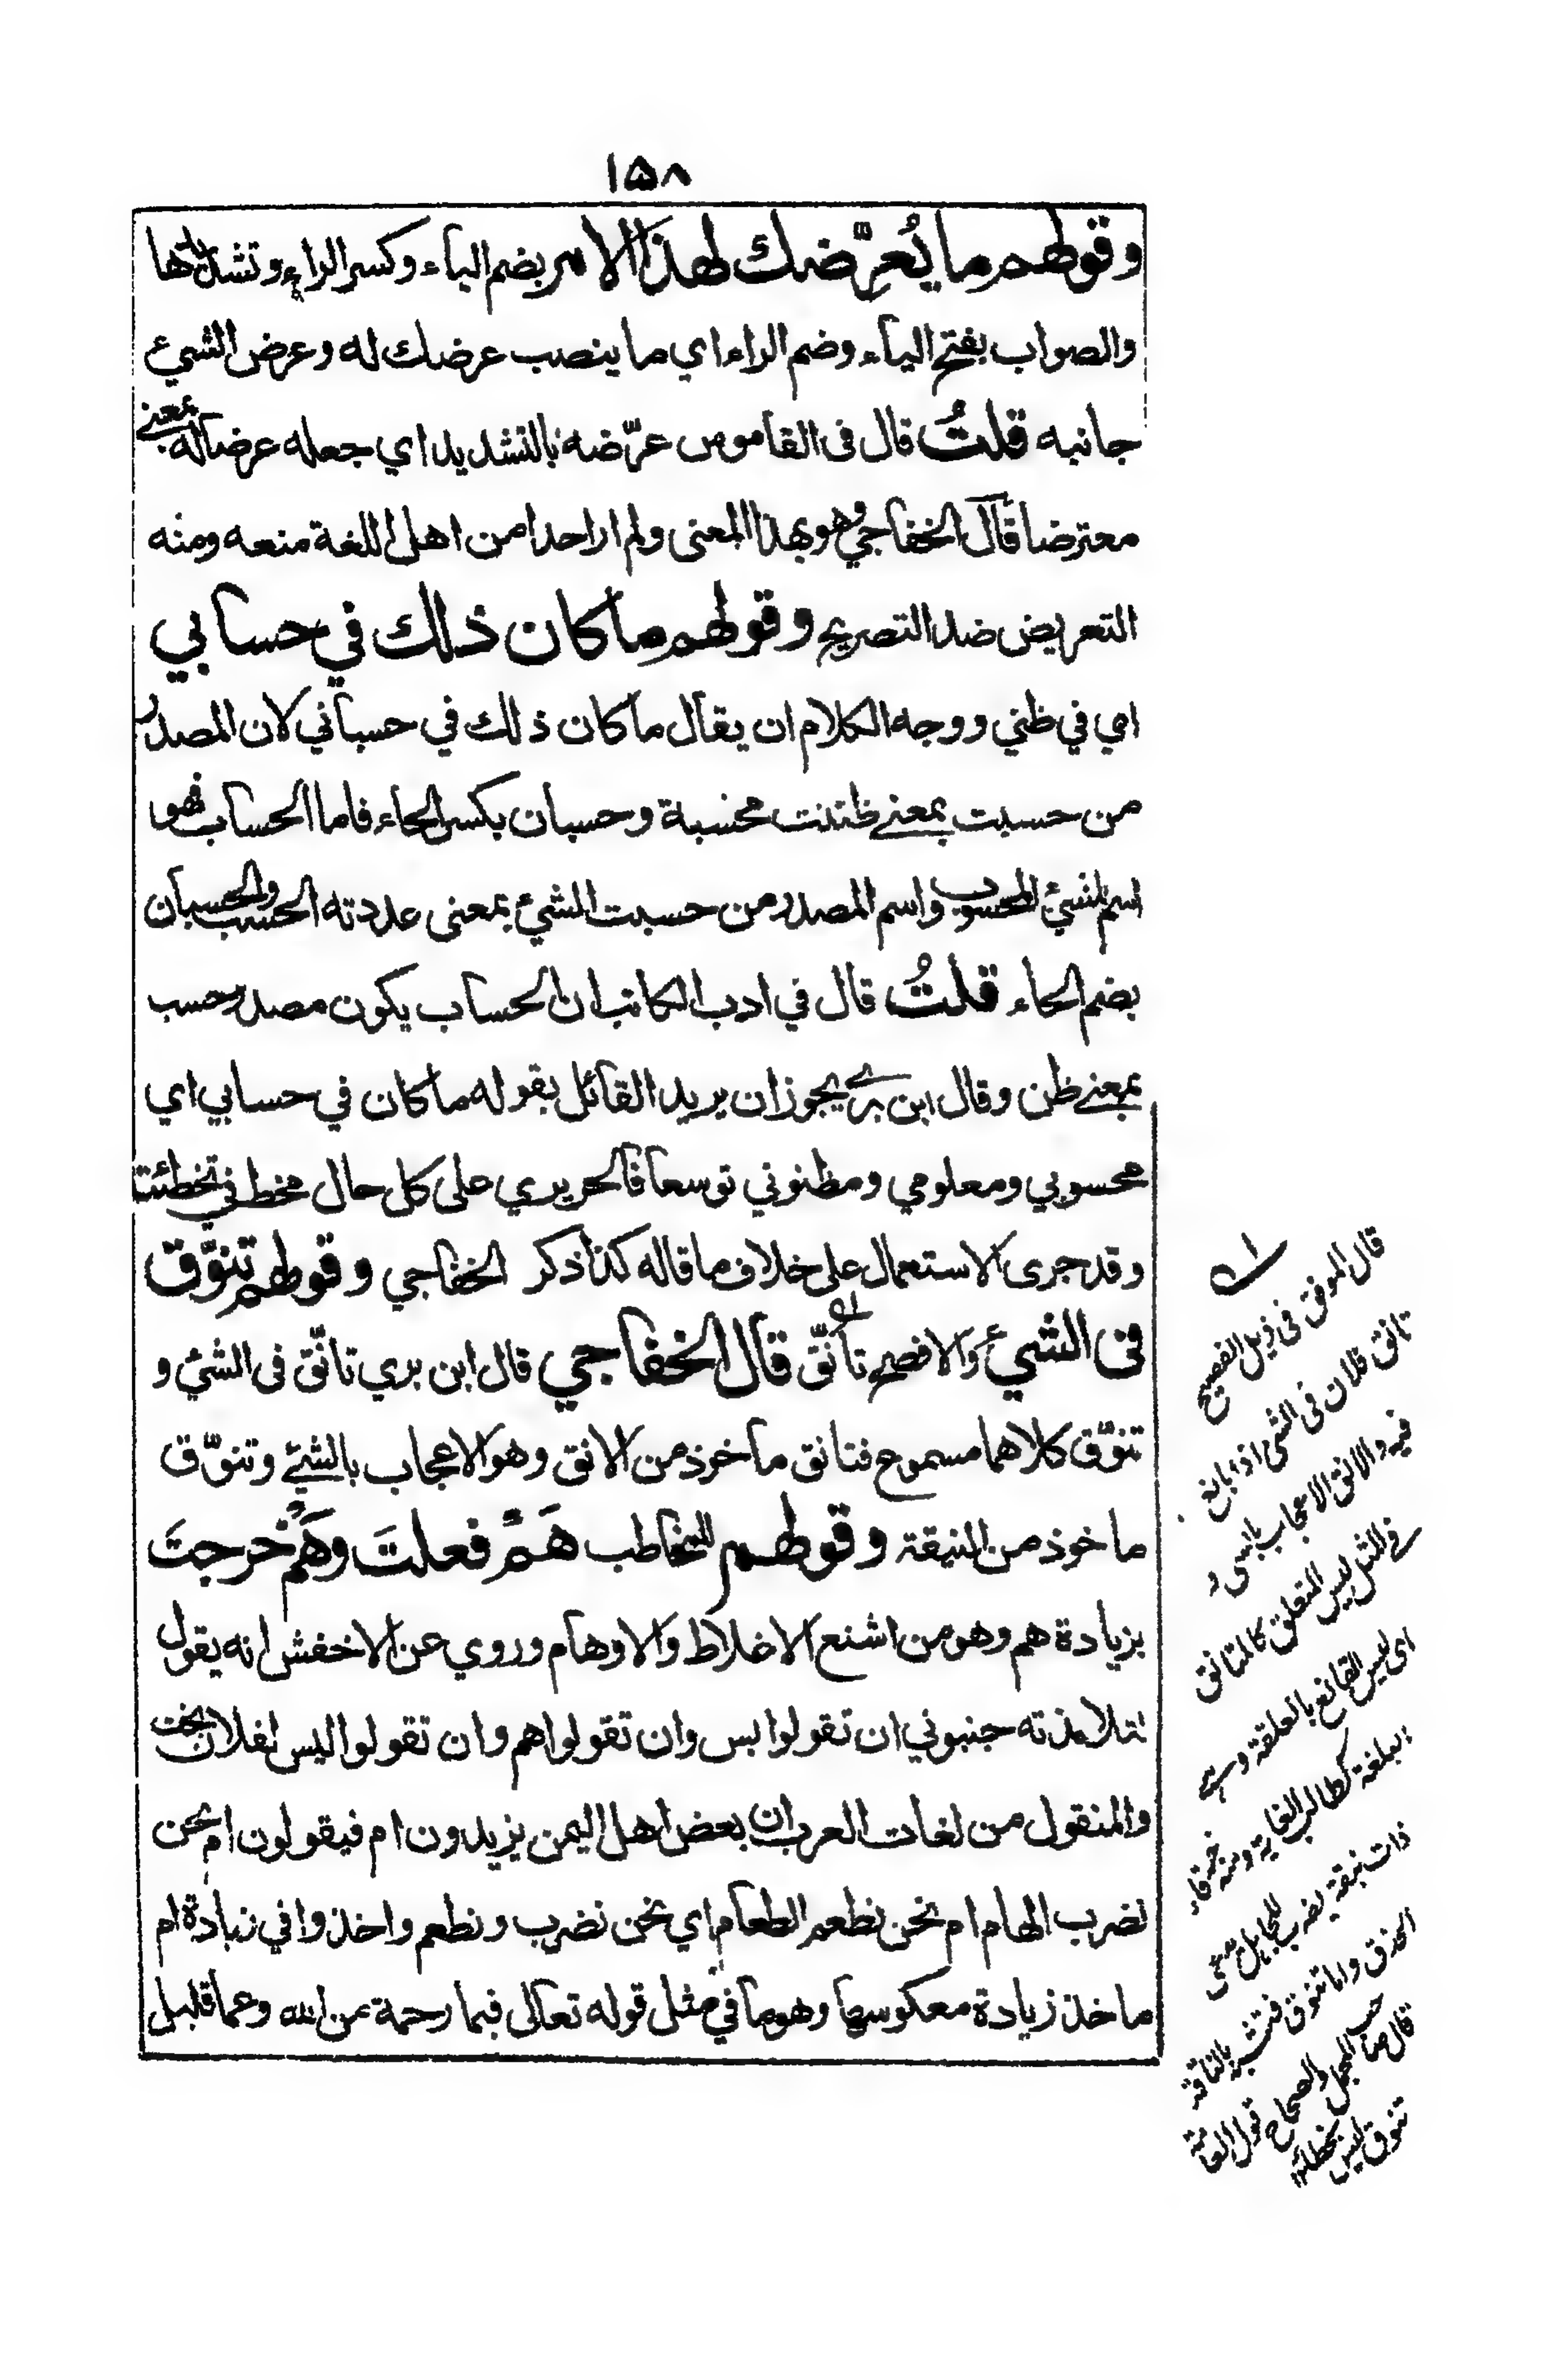 ١٥٨
وقولهم ما يُعرِّضك لهذا الامر بضم الياء وكسر الراء وتشديدها
والصواب بفتح الياء وضم الراء اي ما ينصب عرضك له وعرض الشيء
جانبه قلتُ قال فى القاموس عرّضه بالتشديد اي جعله عرضا له بمعنے
معترضا قال الخفاجي وهو بهذا المعنى ولم ار احدا من اهل اللغة منعه ومنه
التعريض ضد التصريح وقولهم ما كان ذلك في حسابي
اي في ظني ووجه الكلام ان يقال ما كان ذلك في حسباني لان المصدر
من حسبت بمعنے ظننت محسبة وحسبان بكسر الحاء فاما الحساب فهو
اسم للشيئ المحسوب واسم المصدر من حسبت الشيئ بمعنى عددته الحسب والحسبان
بضم الحاء قلتُ قال في ادب الكاتب ان الحساب يكون مصدر حسب
بمعنے ظن وقال ابن بري يجوز ان يريد القائل بقوله ما كان في حسابي اي
محسوبي ومعلومي ومظنوني توسعا فالحريري على كل حال مخط في تخطئته
وقد جرى الاستعمال على خلاف ما قاله كذا ذكر الخفاجي وقولهم تنوّق
فى الشيئ والافصح تأنّق قال الخفاجي قال ابن بري تانّق فى الشئ و
تنوّق كلاهما مسموع فتانق ماخوذ من الانق وهو الاعجاب بالشئے وتنوّق
ماخوذ من النيقة وقولهم للمخاطب هَمْ فعلتَ وهَمْ خرجتَ
بزيادة هم وهو من اشنع الاغلاط والاوهام وروي عن الاخفش انه يقول
لتلامذته جنبوني ان تقولوا بس وان تقولوا هم وان تقولوا ليس لفلان بخت
والمنقول من لغات العرب ان بعض اهل اليمن يزيدون ام فيقولون ام نحن
نضرب الهام ام نحن نطعم الطعام اي نحن نضرب ونطعم واخذوا في زيادة ام
ماخذ زيادة معكوسها وهو ما في مثل قوله تعالى فبما رحمة من الله وعما قليل
قال الموفق فى ذيل الفصيح
تانق فلان فى الشى اذا بالغ
فيه والانق الاعجاب بالشئ
وفى المثل ليس المتعلق كالمتانق
اى ليس القانع بالعلقة وهى
البلغة كطالب الغاية ومنه خرقاء
ذات نيقة يضرب للجاهل يدعى
الحذق واما تنوق فتشبه بالناقة
قال صاحب المجمل والصحاح قول العامة
تنوق ليس بخطاء